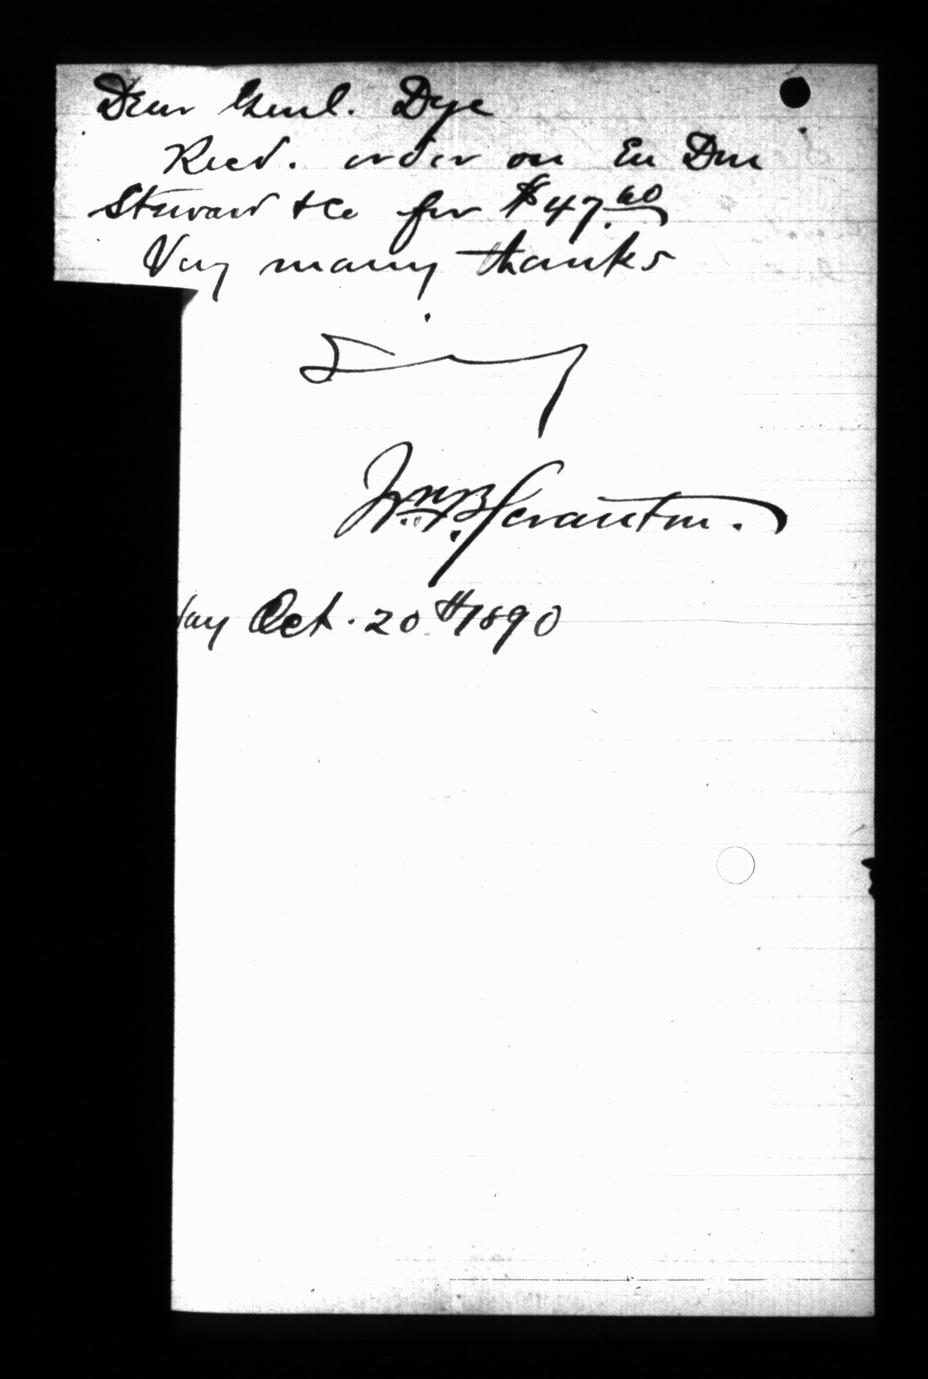 Dear Genl. Dye
Recd. order on Eu Don
Steward & Co for $47.60
Very many thanks
Sincy
Wm. B. Scranton.
day Oct. 20th 1890